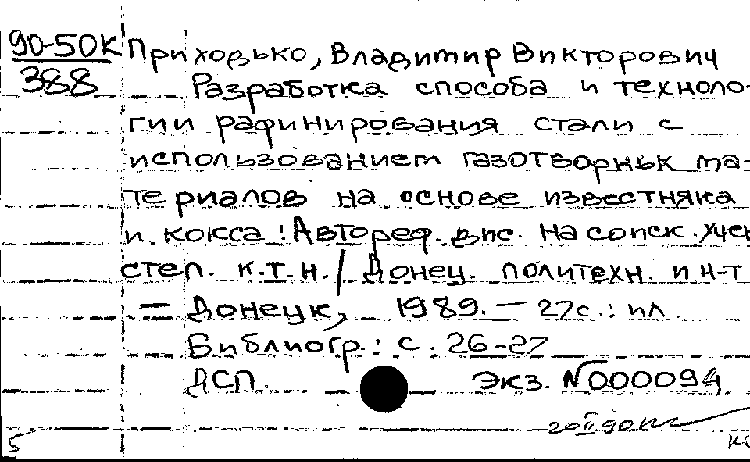 90-50К Приходько, Владимир Викторович
388 Разработка способа и техноло-
гии рафинирования стали с
использованием газотворных ма-
териалов на основе известняка
и кокса: Автореф. дис. на соиск. учен
степ. к.т.н. / Донец. политехн. ин-т
- Донецк, 1989. - 27с.: ил
Библиогр.: с. 26-27
ДСП. Экз. №000094
5